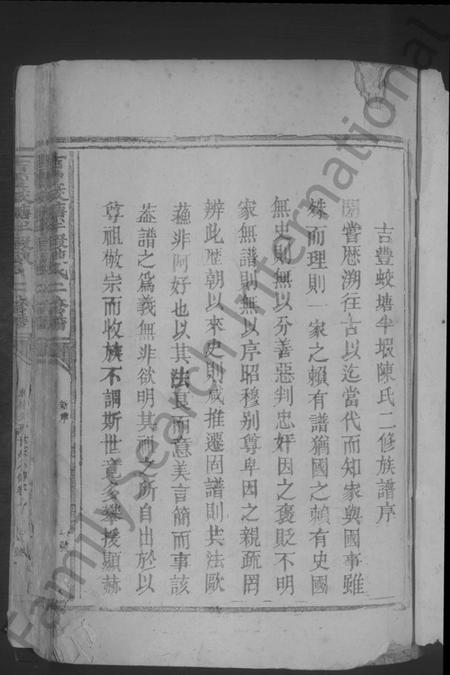 吉豐蛟塘半塅陳氏二修族譜序
嘗歷溯往古以迄當代而知家與國事雖
殊而理則一家之賴有譜猶國之賴有史國
無史則無以分善惡判忠奸因之褒貶不明
家無譜則無以序昭穆别尊卑因之親疏罔
辨此歷朝以來史則咸推遷固譜則共法歐
蘇非阿好也以其法良而意美言簡而事該
葢譜之為義無非欲明其祖之所自出於以
尊祖敬宗而收族不謂斯世竟多攀援顯赫
FamilySearch International